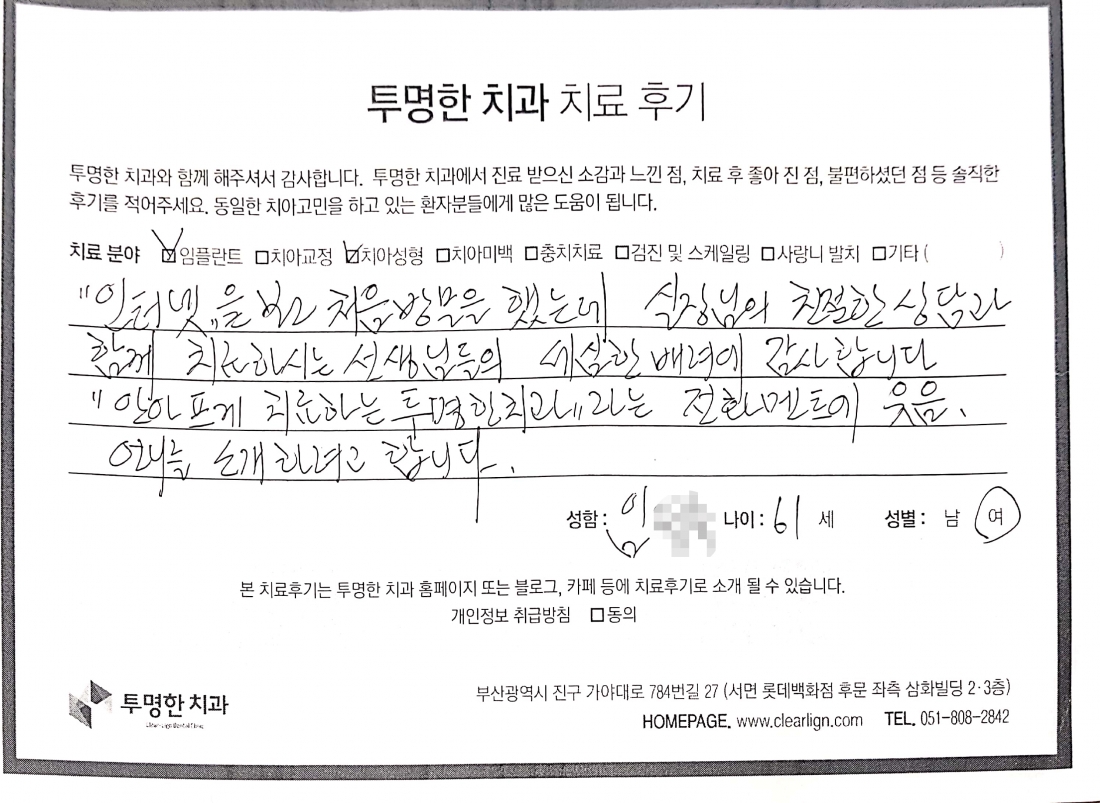 투명한 치과 치료 후기
투명한 치과와 함께 해주셔서 감사합니다. 투명한 치과에서 진료 받으신 소감과 느낀 점, 치료 후 좋아 진 점, 불편하셨던 점 등 솔직한
후기를 적어주세요. 동일한 치아고민을 하고 있는 환자분들에게 많은 도움이 됩니다.
치료 분야 ☑임플란트 □치아교정 ☑치아성형 □치아미백 □충치치료 □검진 및 스케일링 □사랑니 발치 □기타 ( )
"인터넷"을 보고 처음 방문을 했는데 실장님의 친절한 상담과
함께 치료하시는 선생님들의 세심한 배려에 감사합니다
"안아프게 치료하는 투명한치과"라는 전화멘트에 웃음.
소개하려고 합니다.
성함 : 임 나이 : 61 세 성별 : 남 여
본 치료후기는 투명한 치과 홈페이지 또는 블로그, 카페 등에 치료후기로 소개 될 수 있습니다.
개인정보 취급방침 □동의
투명한 치과
부산광역시 진구 가야대로 784번길 27 (서면 롯데백화점 후문 좌측 삼화빌딩 2·3층)
HOMEPAGE. www.clearlign.com TEL. 051-808-2842